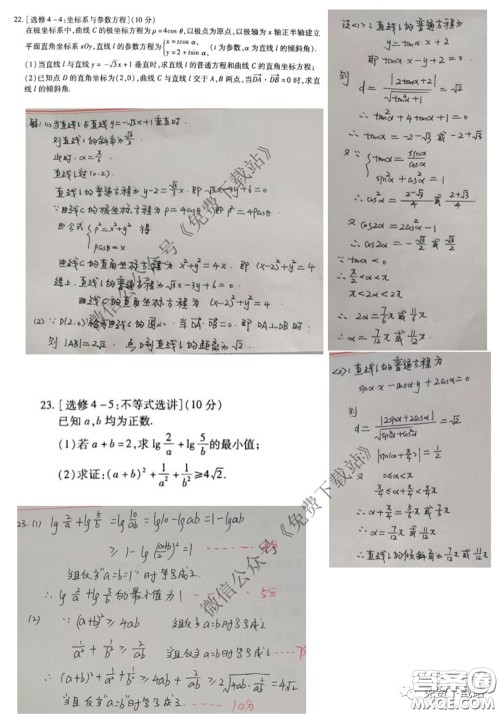 22. [选修4-4:坐标系与参数方程](10分)
在极坐标系中,曲线C的极坐标方程为ρ=4cosθ,以极点为原点,以极轴为x轴正半轴建立
平面直角坐标系xOy,直线l的参数方程为{x=tcosα, y=2+tsinα, (t为参数,α为直线l的倾斜角).
(1)当直线l与直线y=-√3x+1垂直时,求直线l的普通方程和曲线C的直角坐标方程;
(2)已知点D的直角坐标为(2,0),曲线C与直线l交于A,B两点,当DA·DB=0时,求直
线l的倾斜角.
解:(1)当直线l与直线y=-√3x+1垂直时.
则直线l的斜率为√3/3
此时.α=π/6
直线过(0,2).
直线l的普通方程为y-2=√3/3x.即√3x-3y+6=0
∵曲线C的极坐标方程为ρ=4cosθ 即ρ²=4ρcosθ
由公式{ρ²=x²+y² ρcosθ=x 得
曲线C的直角坐标方程为x²+y²=4x.即(x-2)²+y²=4
综上.直线l的普通方程为√3x-3y+6=0.
曲线C的直角坐标方程为(x-2)²+y²=4
(2) ∵D(2,0)恰为曲线C的圆心.当DA·DB=0.即DA⊥DB时.
则|AB|=2√2.点D到直线l的距离为√2.
法<1>:直线l的普通方程为
y=tanα·x+2
即tanα·x-y+2=0.
则
d=|2tanα+2|/√(tan²α+1)=√2
∴tan²α+4tanα+1=0
∴tanα=-2-√3或-2+√3
又∵{tanα=sinα/cosα sin²α+cos²α=1
∴cos²α=(2-√3)/4或(2+√3)/4
又cos2α=2cos²α-1
∴cos2α=-√3/2或√3/2
∵tanα<0
∴π/2<α<π
π<2α<2π
∴2α=7/6π或11/6π
∴α=7/12π或11/12π
<2>:直线l的普通方程为
sinα·x-cosα·y+2cosα=0
则
d=|2sinα+2cosα|/√(sin²α+cos²α)=√2
∴|sin(α+π/4)|=1/2
又∵0≤α<π
π/4≤α+π/4<5/4π
∴α+π/4=5/6π或7/6π
∴α=7/12π或11/12π
∴直线l的倾斜角为7/12π或11/12π
23. [选修4-5:不等式选讲](10分)
已知a,b均为正数.
(1)若a+b=2,求lg2/a+lg5/b的最小值;
(2)求证:(a+b)²+1/a²+1/b²≥4√2.
23.(1) lg2/a+lg5/b=lg10/ab=lg10-lgab=1-lgab
≥1-lg((a+b)/2)²=1
当且仅当“a=b=1”时等号成立
∴lg2/a+lg5/b的最小值为1 5分
(2) ∵(a+b)²≥4ab 当且仅当a=b时等号成立
1/a²+1/b²≥2/ab 当且仅当a=b时等号成立
∴(a+b)²+1/a²+1/b²≥4ab+2/ab≥2√(4ab·2/ab)=4√2
当且仅当a=b时等号成立 10分
微信公众号《免费下载站》
微信公众号《免费下载站》
免费下载站
答案圈
MXQE.COM